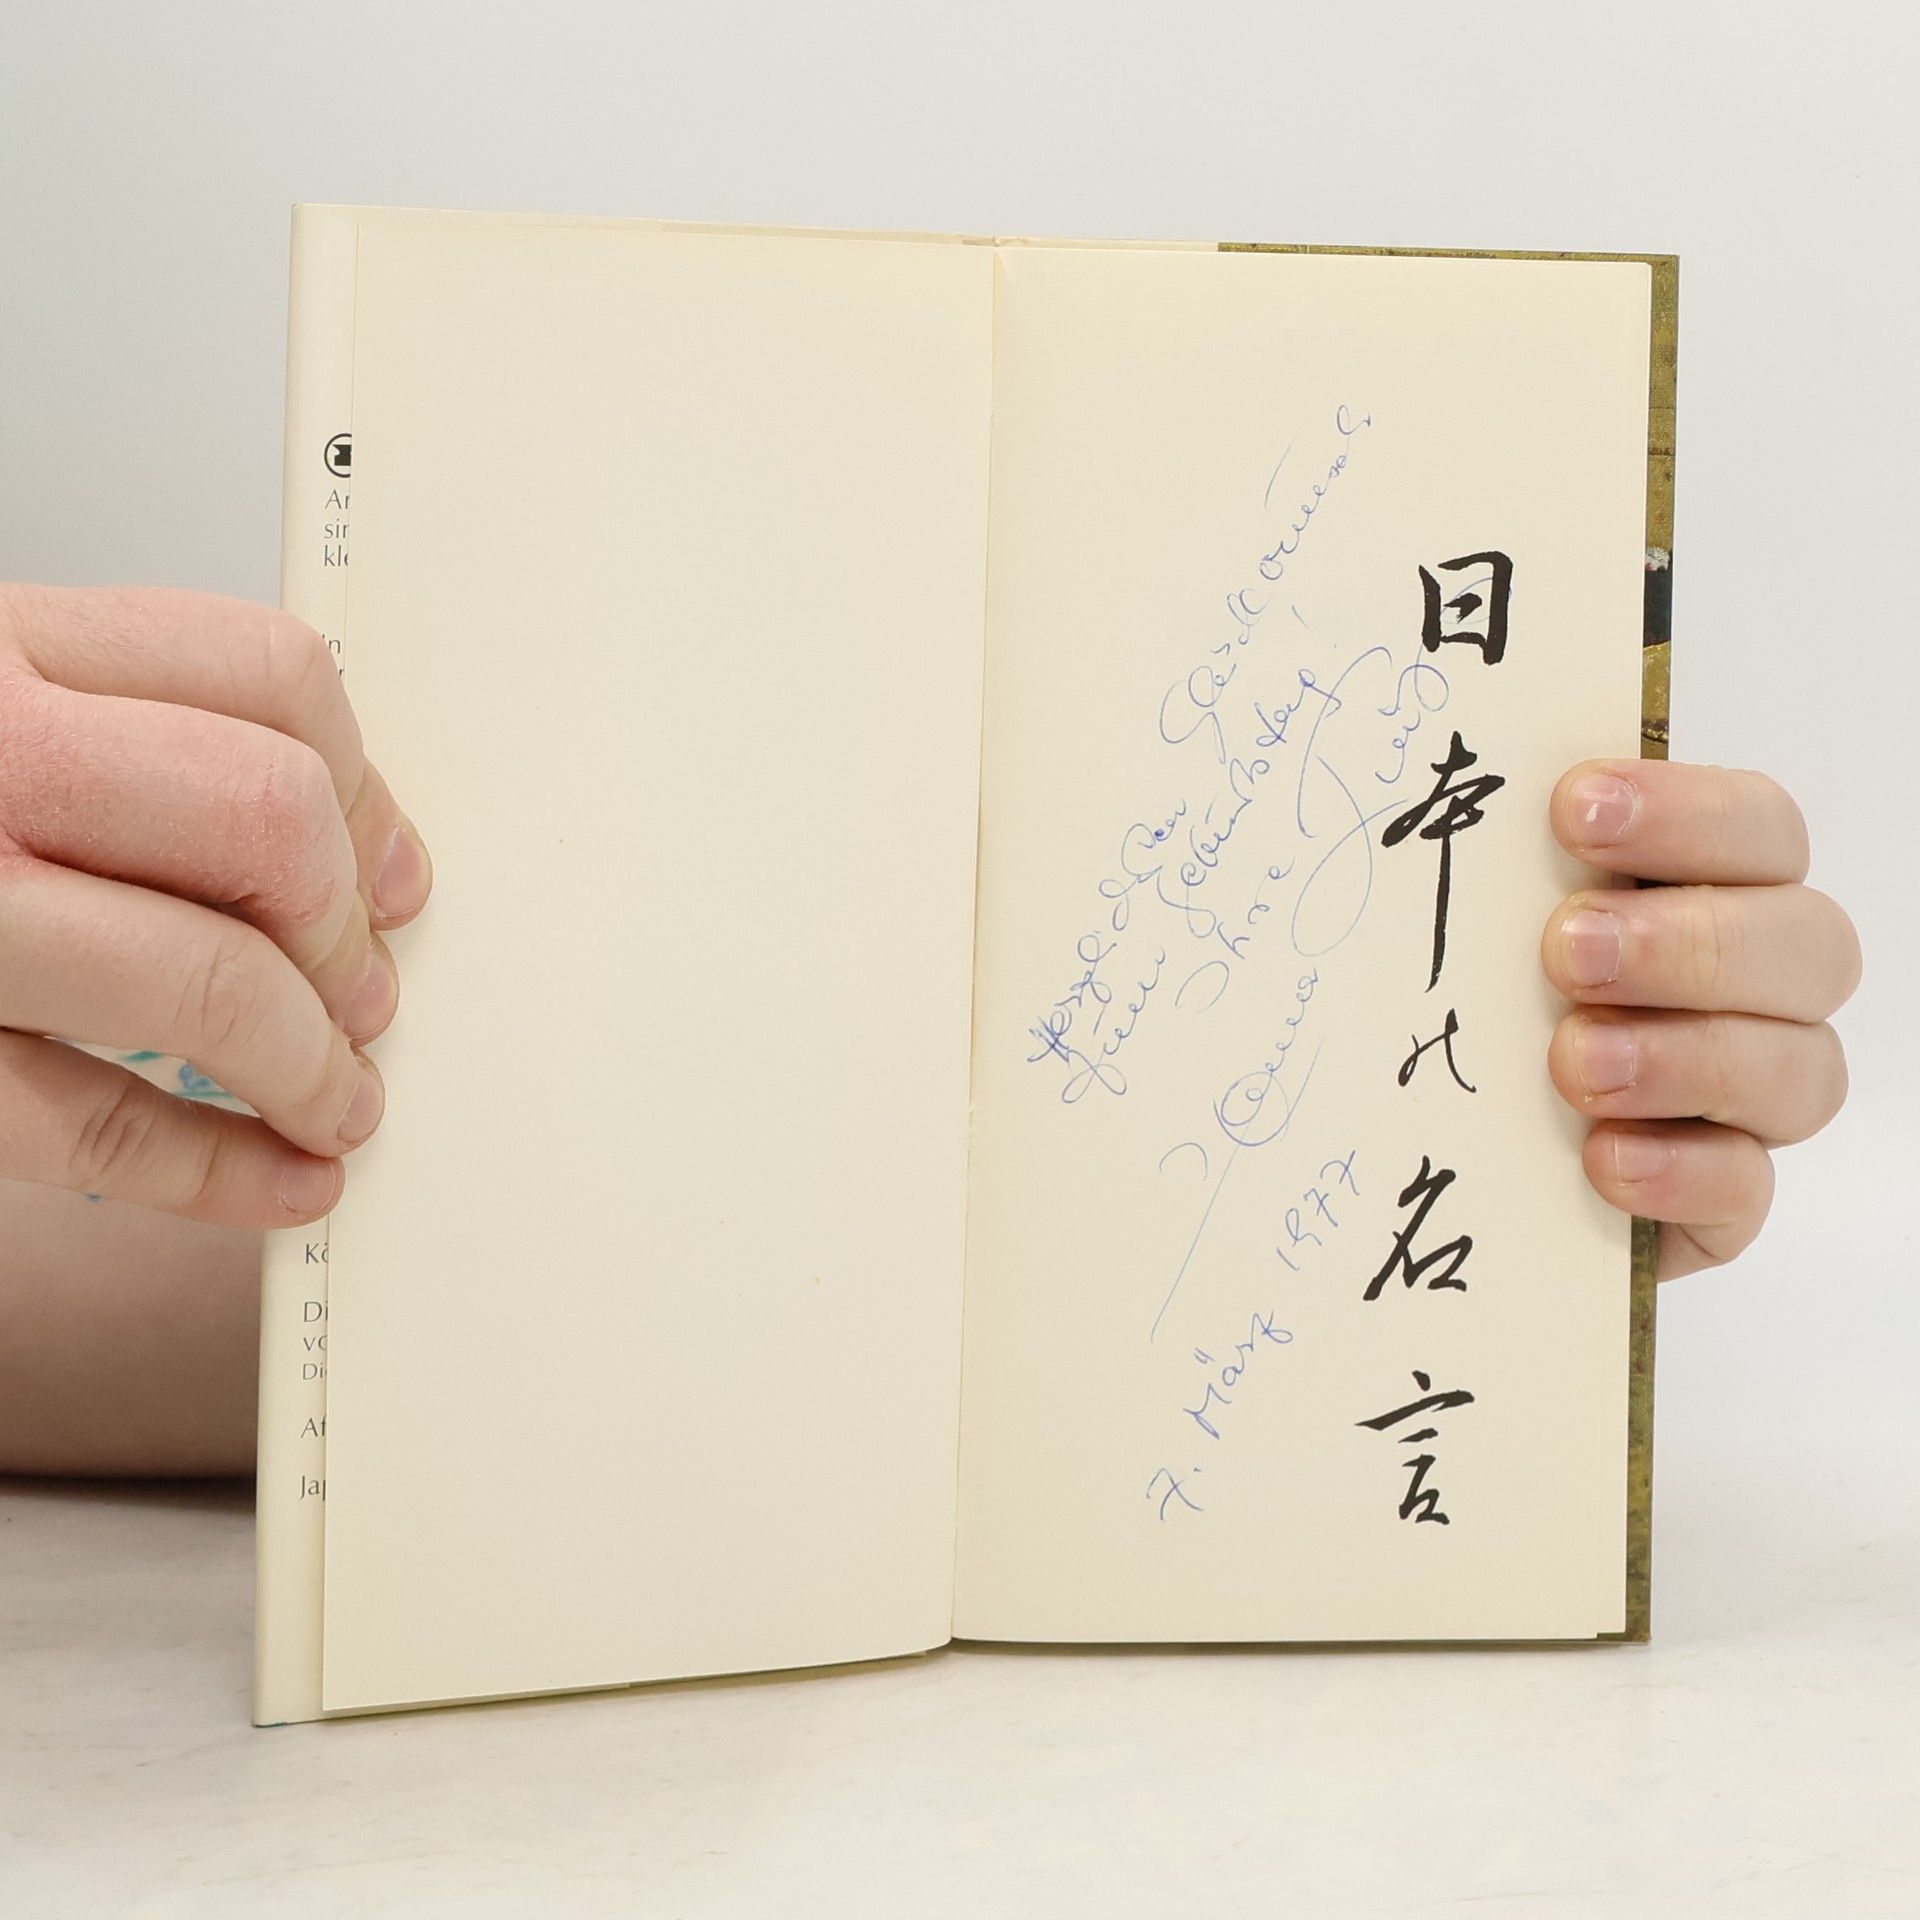 Ar
sin
kle
In
Kö
Di
vo
Die
Af
Jap
Herzlichen Glückwunsch
zum Geburtstag!
Ihre
Anna
7. März 1977
日本の名言